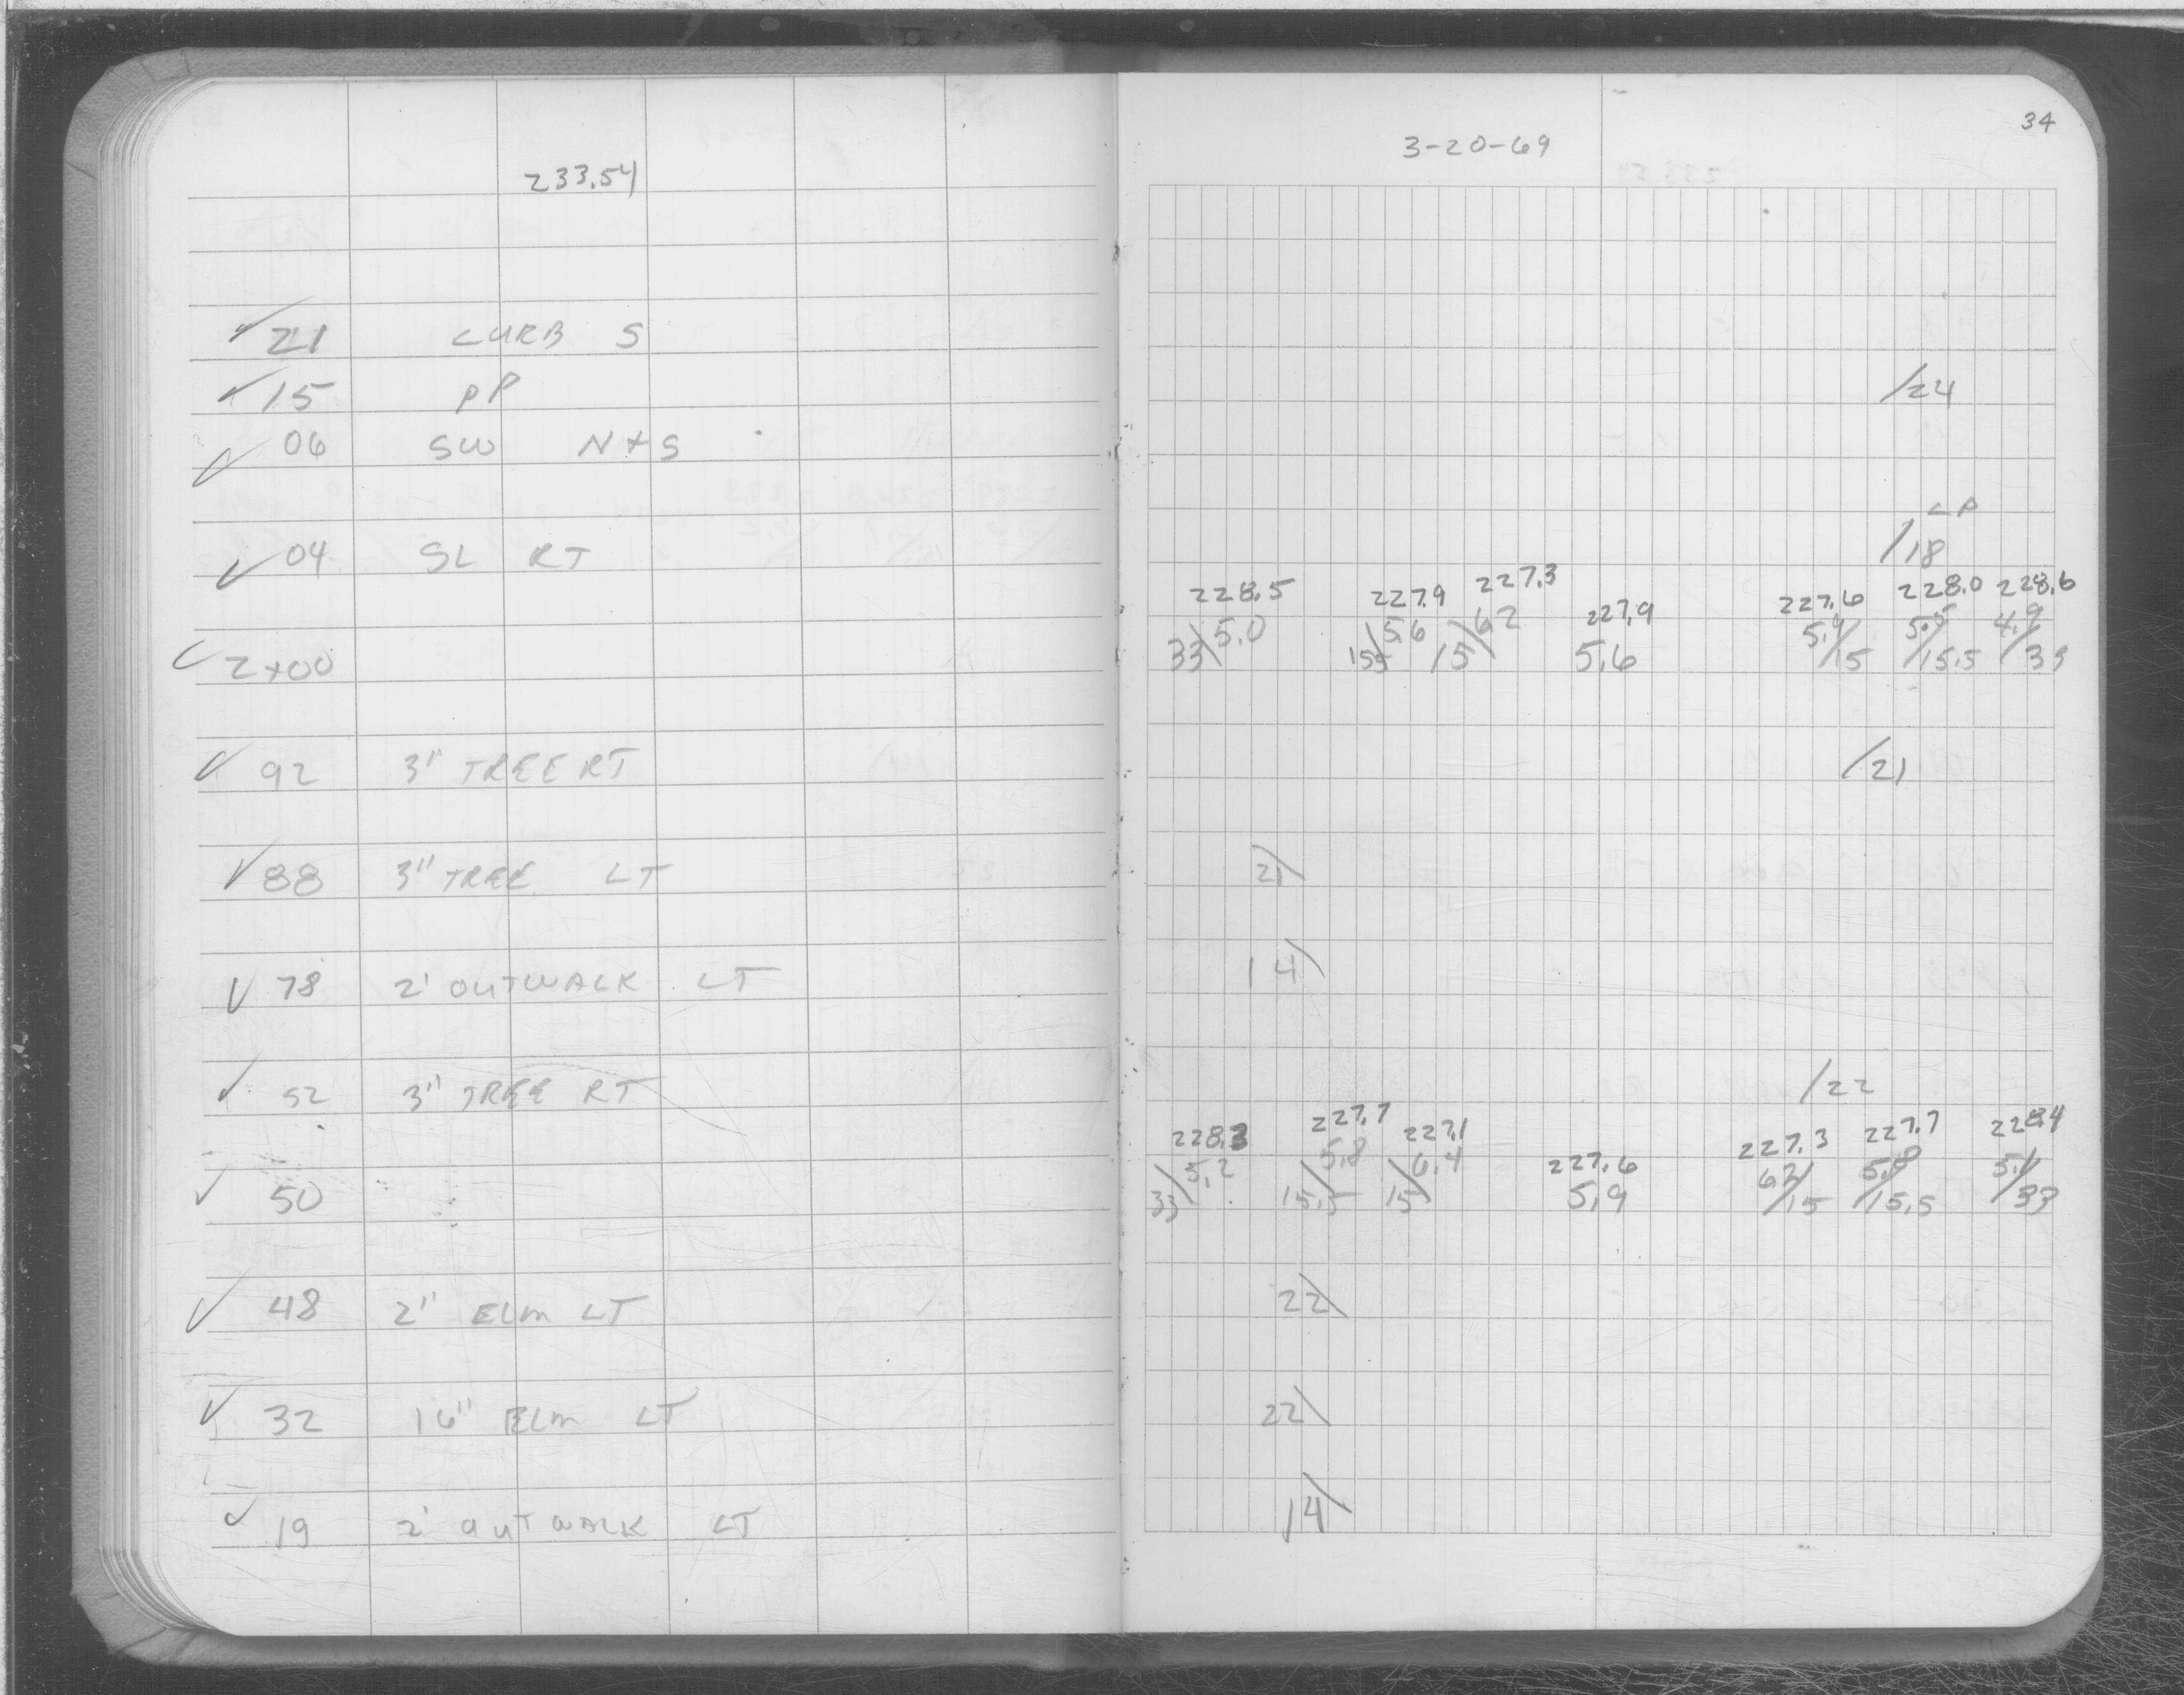 34
3-20-69
233.54
21 CURB S
15 PP /24
06 SW N+S
LP
04 SL RT /18
228.5 227.9 227.3 227.9 227.6 228.0 228.6
5.0 5.6 6.2 5.6 5.9 5.5 4.9
2+00 33\ 15.5\ 15\ /15 /15.5 /33
92 3" TREE RT /21
88 3" TREE LT 21\
78 2' OUTWALK LT 14\
52 3" TREE RT /22
228.3 227.7 227.1 227.6 227.3 227.7 228.4
5.2 5.8 6.4 5.9 6.2 5.8 5.1
50 33\ 15.5\ 15\ /15 /15.5 /33
48 2" ELM LT 22\
32 16" ELM LT 22\
19 2' OUTWALK LT 14\